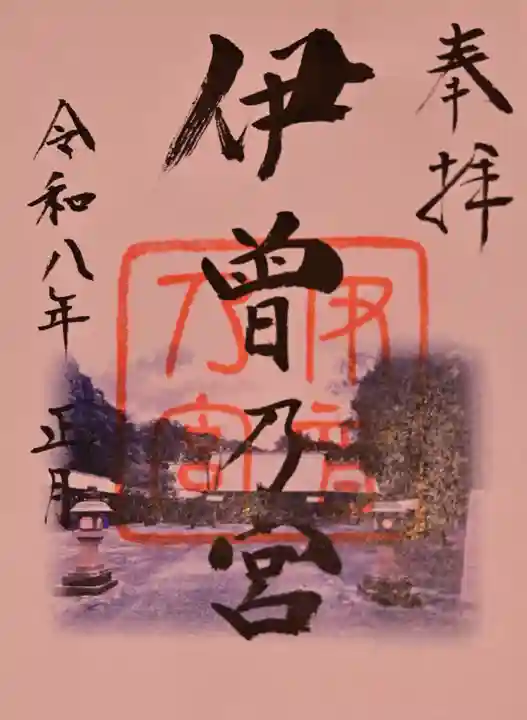 奉拝
伊曽乃宮
令和八年 正月
伊曽乃宮